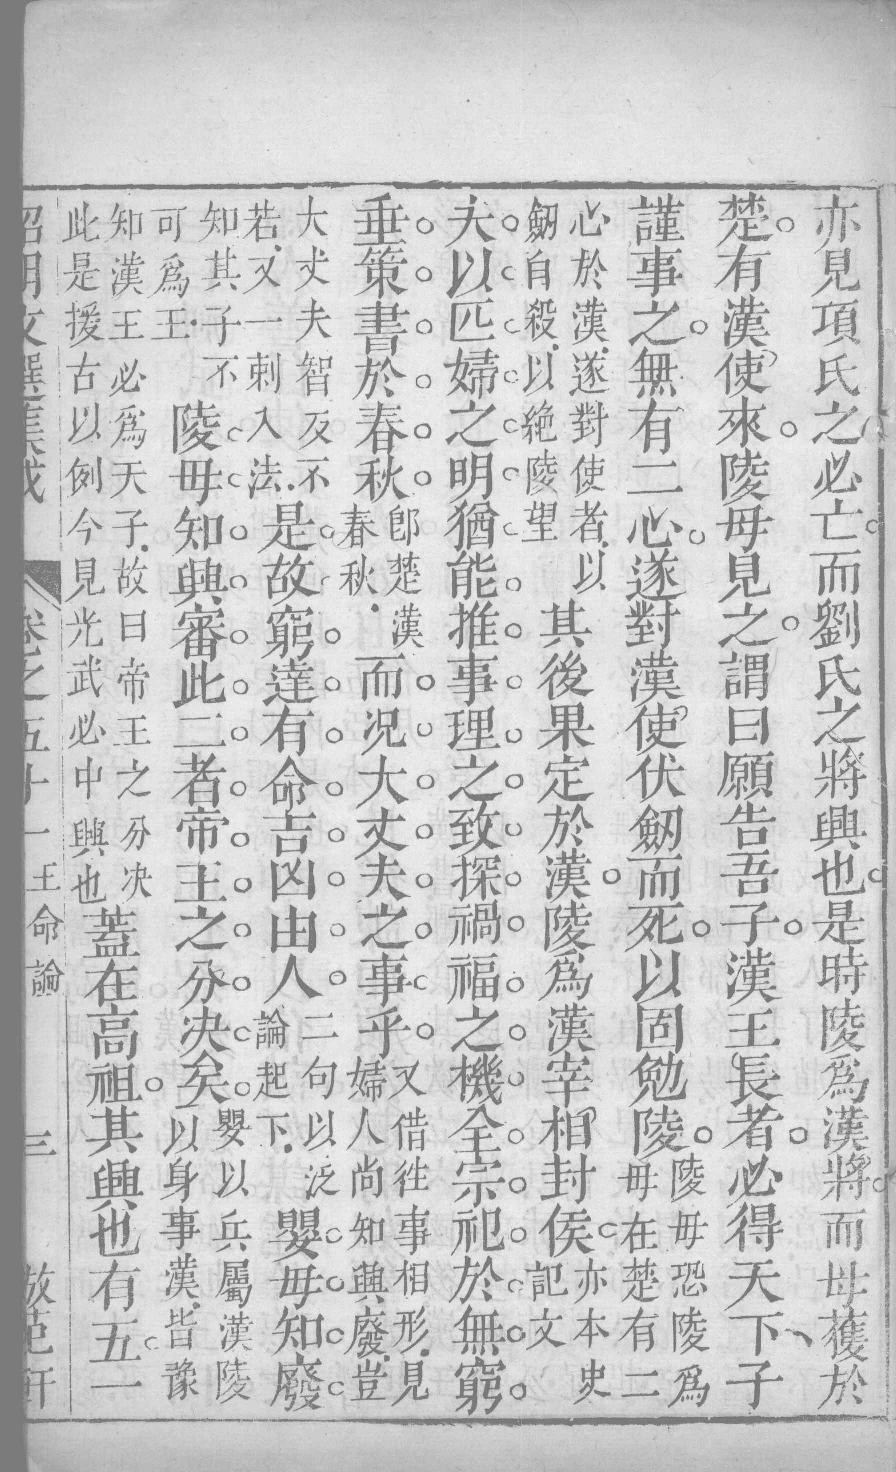 亦見項氏之必亡而劉氏之將興也是時陵爲漢將而母獲於
楚有漢使來陵母見之謂曰願告吾子漢王長者必得天下子
謹事之無有二心遂對漢使伏劒而死以固勉陵陵母恐陵爲母在楚有二
心於漢遂對使者以劒自殺以絶陵望其後果定於漢陵爲漢宰相封侯亦本史記文
夫以匹婦之明猶能推事理之致探禍福之機全宗祀於無窮
垂策書於春秋卽楚漢春秋而况大丈夫之事乎又借往事相形見婦人尚知興廢豈
大丈夫智反不若又一刺入法是故窮達有命吉凶由人二句以泛論起下嬰母知廢
知其子不可爲王陵母知興審此二者帝王之分决矣嬰以兵屬漢陵以身事漢皆豫
知漢王必爲天子故曰帝王之分决此是援古以例今見光武必中興也蓋在高祖其興也有五一
昭明文選集成 卷之五十一 王命論 三 倣范軒